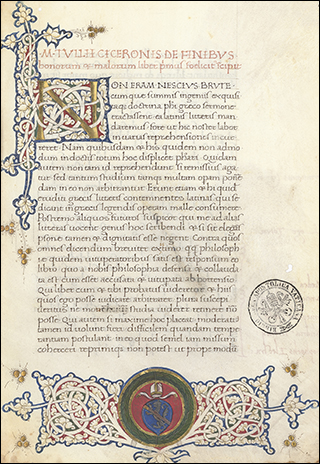 M·TVLLII CICERONIS DE FINIBVS
bonorum & malorum liber primus foeliciter
NON ERAM NESCIVS BRVTE·
cum que summis ingeniis exqui
sitaq; doctrina phi greco sermone
tractavissent ea latinis litteris man
daremus fore ut hic noster labor
in uarias reprehensiones incur
reret· Nam quibusdam & his quidem non admo
dum indoctis totum hoc displicet phari· Quidam
autem non tam id reprehendunt si remissius aga
tur sed tantum studium tamq; multam opam ponē
dam in eo non arbitrantur· Erunt etiam & hi quidē
eruditi grecis litteris contemnentes latinas qui se
dicant in grecis legendis operam malle consumere·
Postremo aliquos futuros suspicor qui me ad alias
litteras uocent genus hoc scribendi & si sit elegās
psone tamen & dignitatis esse negent· Contra quos
omnes dicendum breuiter existimo qq philosoph
ie quidem uituperatoribus satis est responsum eo
libro quo a nobis philosophia defensa & collauda
ta est cum esset accusata & uitupata ab hortensio·
Qui liber cum & tibi probatus uideretur & his
quos ego posse iudicare arbitrarer plura suscepi
ueritus ne mouere studia uiderer retinere nō
posse· Qui autem si maxime hoc placeat moderatius
tamen id uolunt fieri difficilem quandam tempe
rantiam postulant in eo quod semel tam missum
coherceri reprimiq; non potest ut prope modū